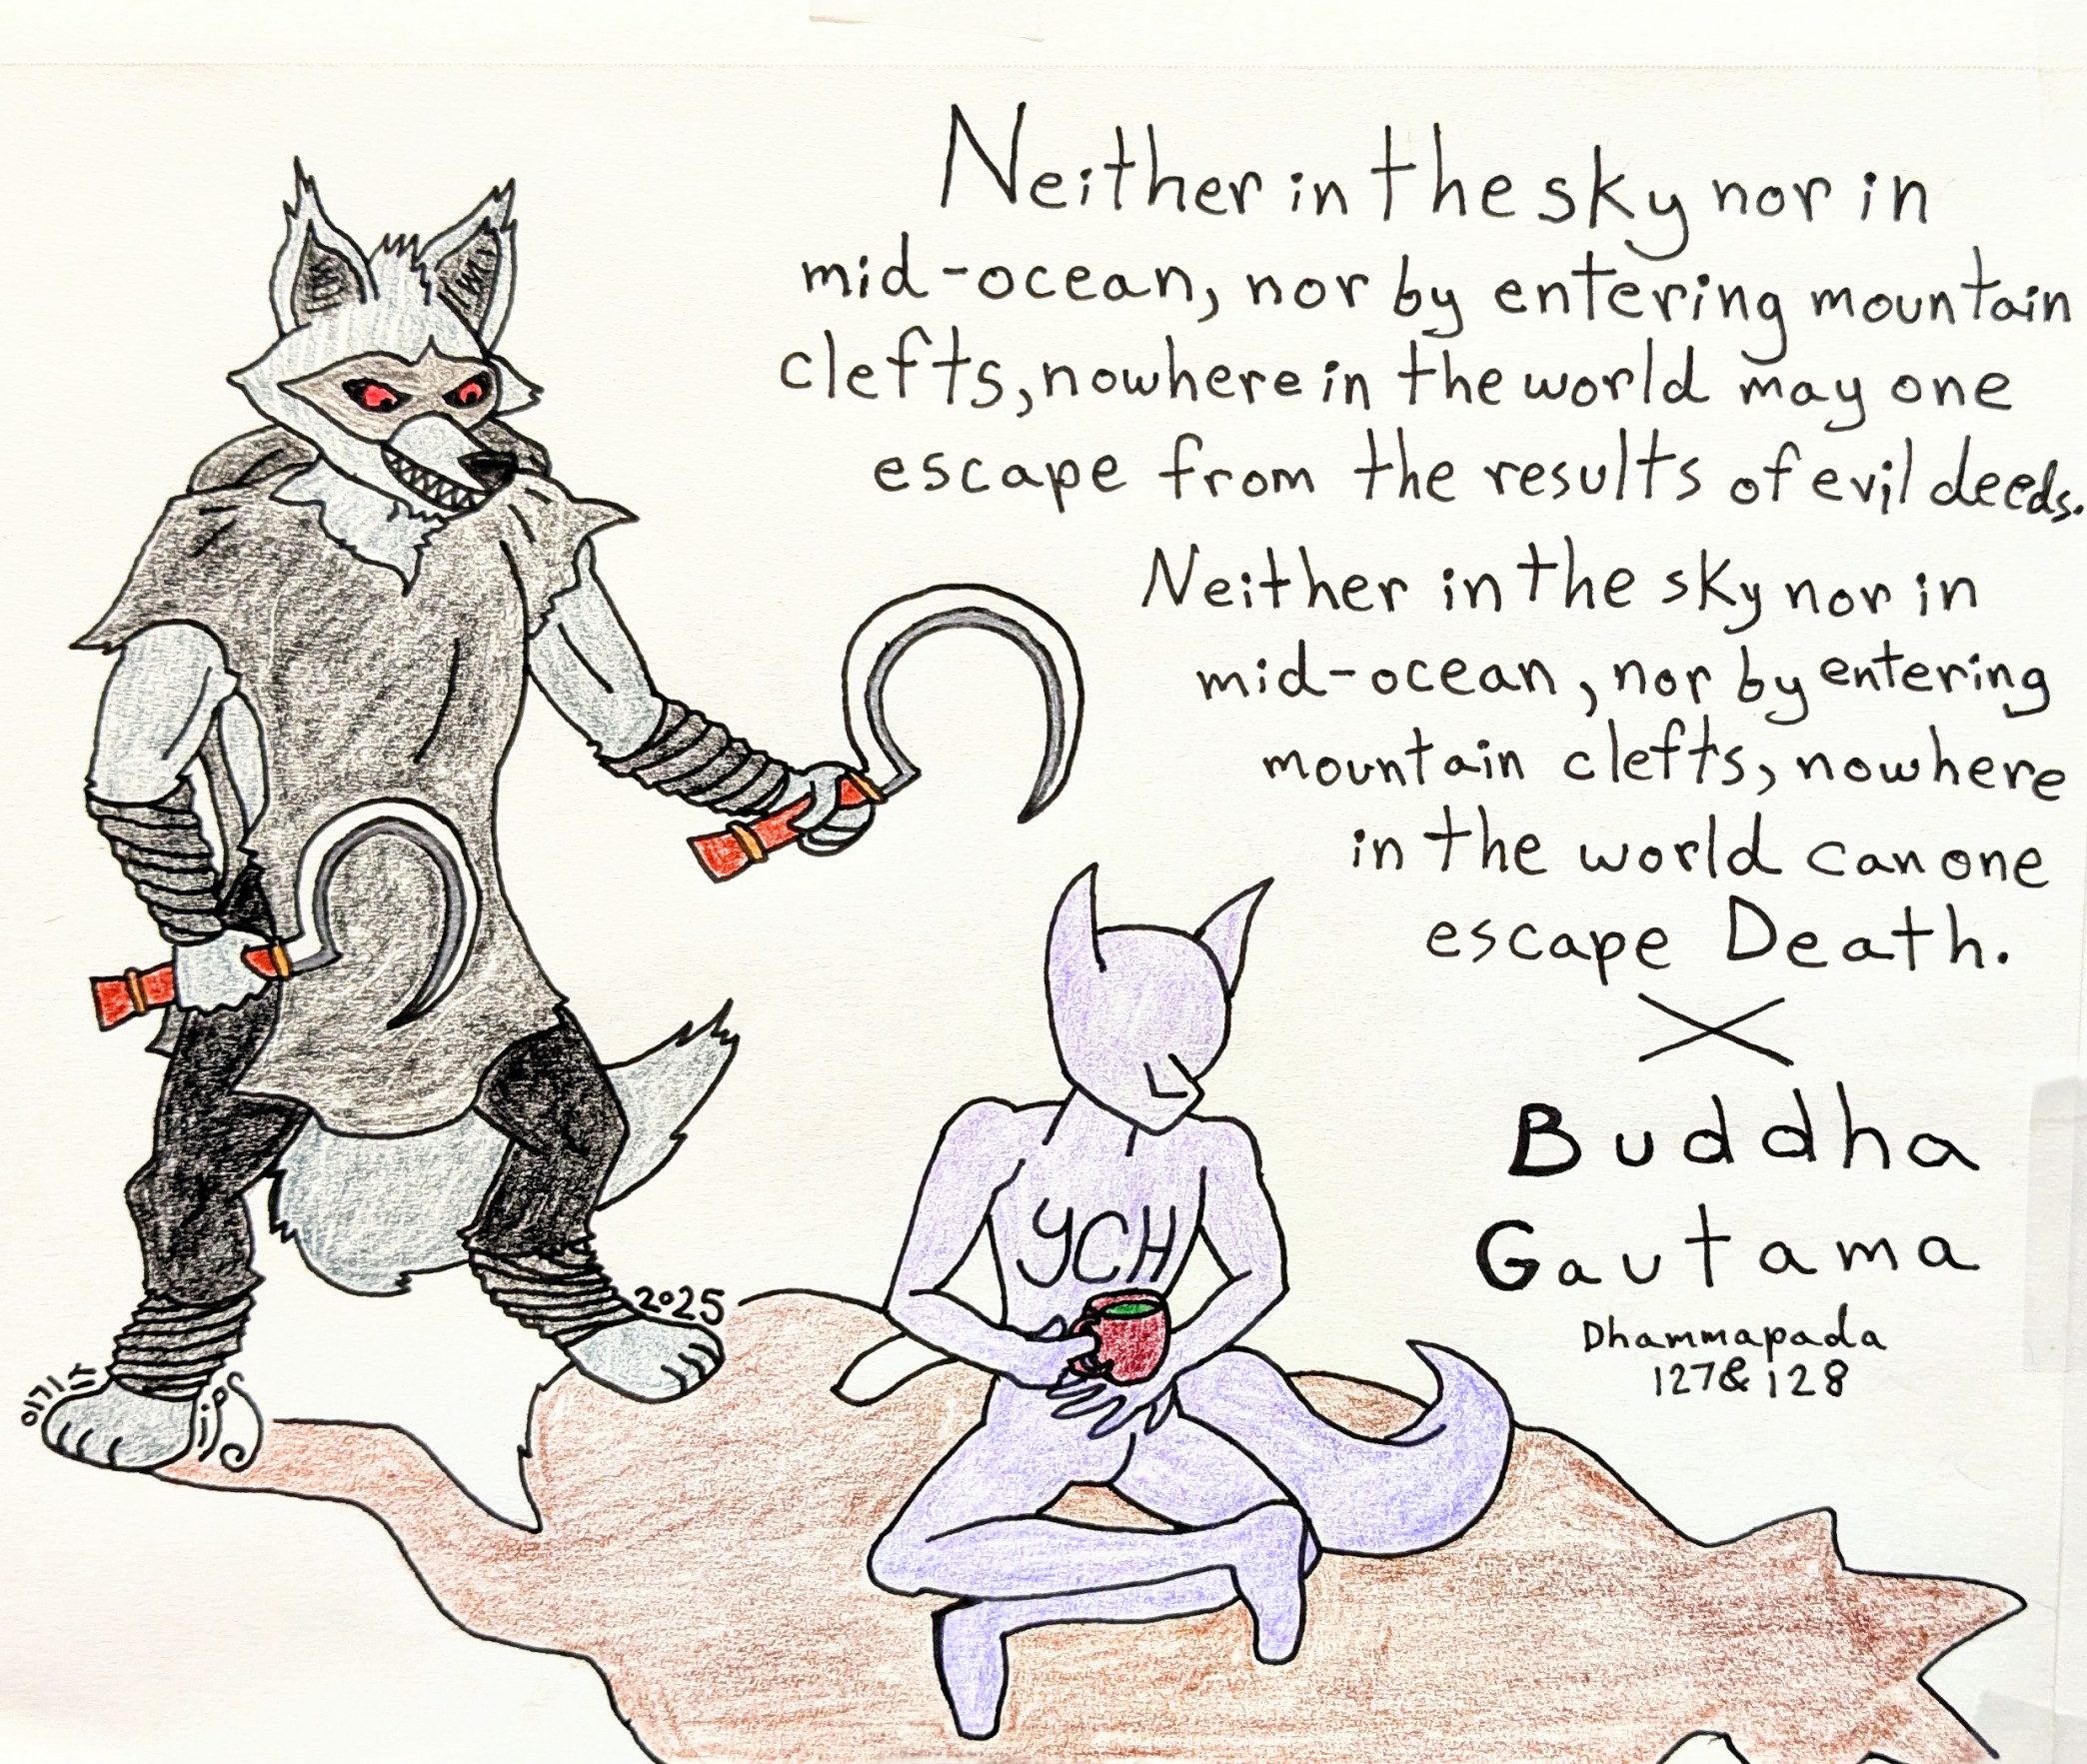 Neither in the sky nor in
mid-ocean, nor by entering mountain
clefts, nowhere in the world may one
escape from the results of evil deeds.
Neither in the sky nor in
mid-ocean, nor by entering
mountain clefts, nowhere
in the world can one
escape Death.
Buddha
Gautama
Dhammapada
127 & 128
YCH
2025